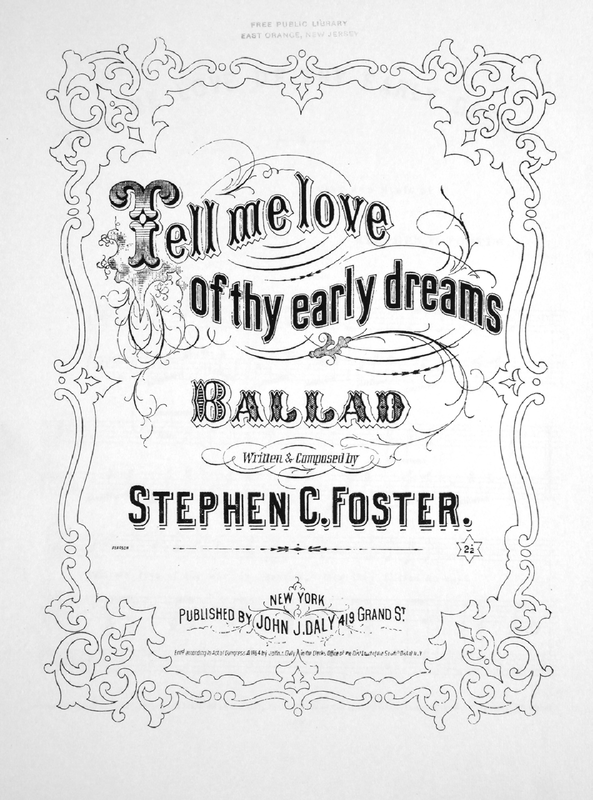 FREE PUBLIC LIBRARY
EAST ORANGE, NEW JERSEY
Tell me love
of thy early dreams
BALLAD
Written & Composed by
STEPHEN C. FOSTER.
2½
NEW YORK
PUBLISHED BY JOHN J. DALY 419 GRAND ST.
according to Act of Congress 1864 by John J. Daly in the Clerks Office of the Dist Court